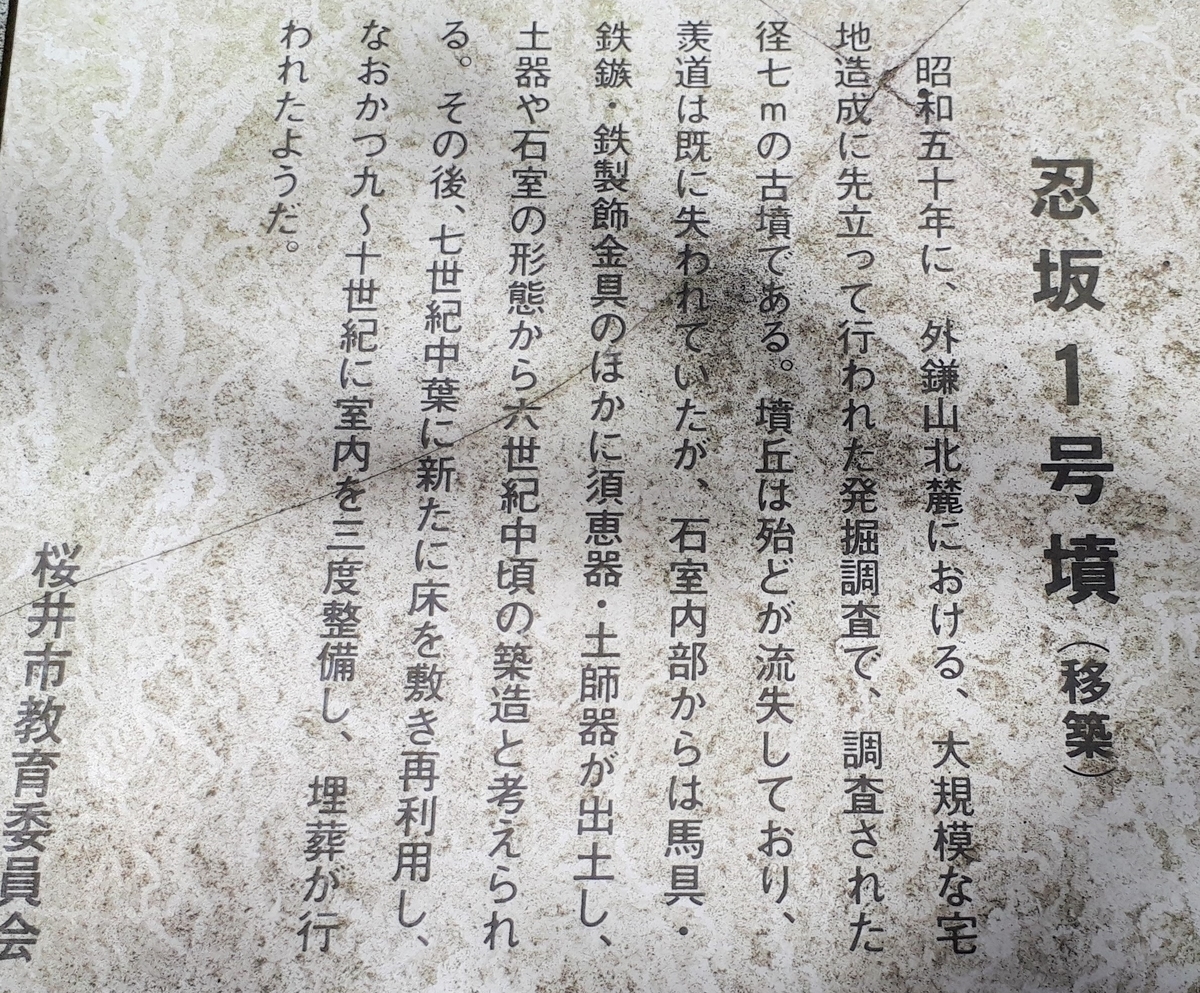 忍坂1号墳（移築）
昭和五十年に、外鎌山北麓における、大規模な宅
地造成に先立って行われた発掘調査で、調査された
径七mの古墳である。墳丘は殆どが流失しており、
羨道は既に失われていたが、石室内部からは馬具・
鉄鏃・鉄製飾金具のほかに須恵器・土師器が出土し、
土器や石室の形態から六世紀中頃の築造と考えられ
る。その後、七世紀中葉に新たに床を敷き再利用し、
なおかつ九〜十世紀に室内を三度整備し、埋葬が行
われたようだ。
桜井市教育委員会